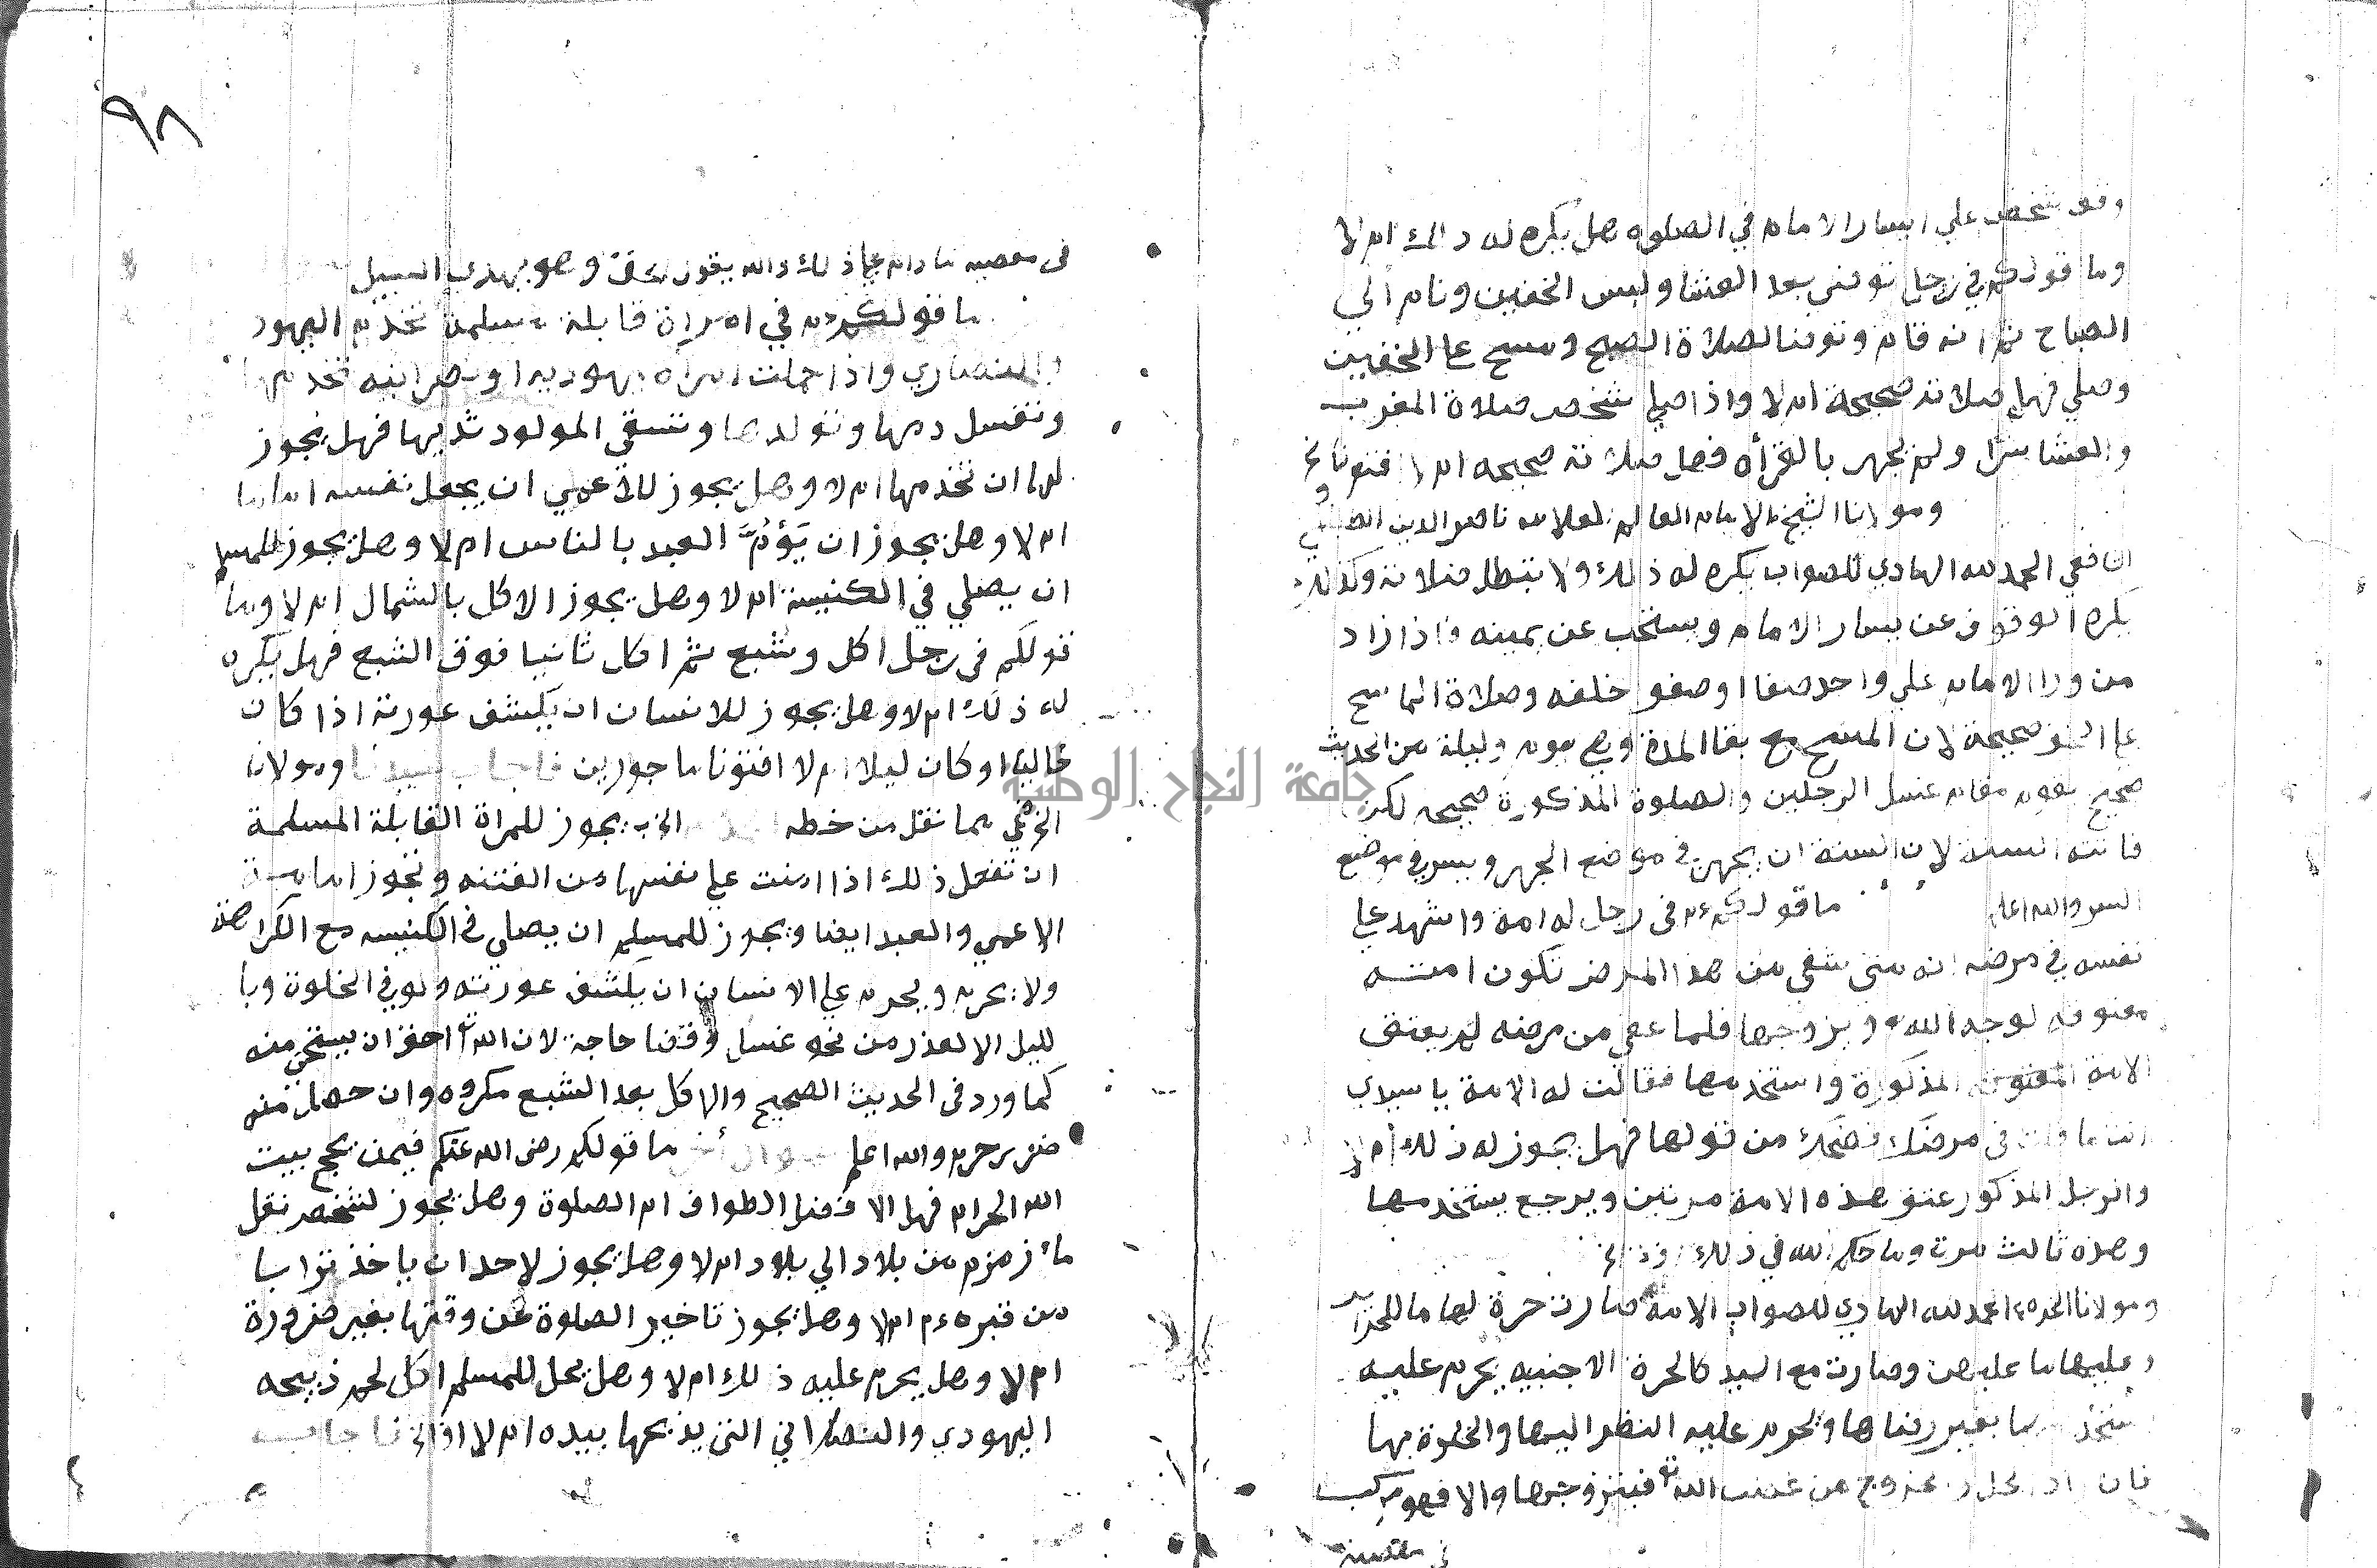 وقف شخص علي ايسار الامام في الصلوه هل يكره له ذالك ام لا
وما قولكم في رجل توضى بعد العشا ولبس الخفين ونام الي
الصباح ثم انه قام وتوضا لصلاة الصبح ومسح علي الخفين
وصلي فهل صلاته صحيحة ام لا واذا صلي شخص صلاة المغرب
والعشا سرا ولم يجهر بالقرأه فهل صلاته صحيحه ام لا افتونا
ومولانا الشيخ الامام العالم العلامه ناصر الدين
الشافعي الحمد لله الهادي للصواب يكره له ذلك ولا تبطل صلاته وكذلك
يكره الوقوف عن يسار الامام ويستحب عن يمينه فاذا زاد
من ورا الامام علي واحد صفا او صفو خلفه وصلاة الماسح
علي الخف صحيحة لان المسح مع بقا المدة وهي يوم وليلة من الحديث
صحيح يقوم مقام غسل الرجلين والصلوة المذكورة صحيحه لكن
فاتته السنه لان السنة ان يجهر في موضع الجهر ويسر في موضع
السر والله اعلم ما قولكم في رجل له امة واشهد علي
نفسه في مرضه انه متى شفي من هذا المرض تكون امته
معتوقه لوجه الله ويزوجها فلما عفي من مرضه لم يعتق
الامة المعتوقه المذكورة واستخدمها فقالت له الامة يا سيدي
انت ما قلت في مرضك فضحك من قولها فهل يجوز له ذلك أم لا
والرجل المذكور عتق هذه الامة مرتين ويرجع يستخدمها
وهذه ثالث مرة وما حكم الله في ذلك
ومولانا الحمد لله الهادي للصواب الامة صارت حرة لها ما للحراير
وعليها ما عليهن وصارت مع السيد كالحرة الاجنبيه يحرم عليه
بغير رضاها ويحرم عليه النظر اليها والخلوة بها
فان من غضب الله فيتزوجها والا فهو مرتكب
في معصية
٩٨
في معصيه ما دام علي ذلك والله يقول الحق وهو يهدي السبيل
ما قولكم في امراة قابلة مسلمة تخدم اليهود
والنصاري واذا حملت امراه يهوديه او نصرانيه تخدمها
وتغسل دمها وتولدها وتسقي المولود ثديها فهل يجوز
لها ان تخدمها ام لا وهل يجوز للاعمي ان يجعل نفسه اماما
ام لا وهل يجوز ان يَؤُمَّ العبد بالناس ام لا وهل يجوز للمسلم
ان يصلي في الكنيسة ام لا وهل يجوز الاكل بالشمال ام لا وما
قولكم في رجل اكل وشبع ثم اكل ثانيا فوق الشبع فهل يكره
له ذلك ام لا وهل يجوز للانسان ان يكشف عورته اذا كان
خاليا او كان ليلا ام لا افتونا ماجورين فاجاب سيدنا ومولانا
بما نقل من خطه يجوز للمراة القابلة المسلمة
ان تفعل ذلك اذا امنت علي نفسها من الفتنه وتجوز امامة
الاعمي والعبد ايضا ويجوز للمسلم ان يصلي في الكنيسه مع الكراهة
ولا يحرم ويحرم علي الانسان ان يكشف عورته ولو في الخلوة وبا
لليل الا لعذر من نحو غسل وقضا حاجة لان الله احق ان يستحى منه
كما ورد في الحديث الصحيح والاكل بعد الشبع مكروه وان حصل منه
ضرر حرم والله اعلم سوال أخر ما قولكم رضى الله عنكم فيمن يحج بيت
الله الحرام فهل الافضل الطواف ام الصلوة وهل يجوز لشخص نقل
مأ زمزم من بلاد الي بلاد ام لا وهل يجوز لاحد ان ياخذ ترابا
من قبره ام لا وهل يجوز تاخير الصلوة عن وقتها بغير ضرورة
ام لا وهل يحرم عليه ذلك ام لا وهل يحل للمسلم اكل لحم ذبيحه
اليهودي والنصراني التي يذبحها بيده ام لا فاجاب
جامعة النجاح الوطنية